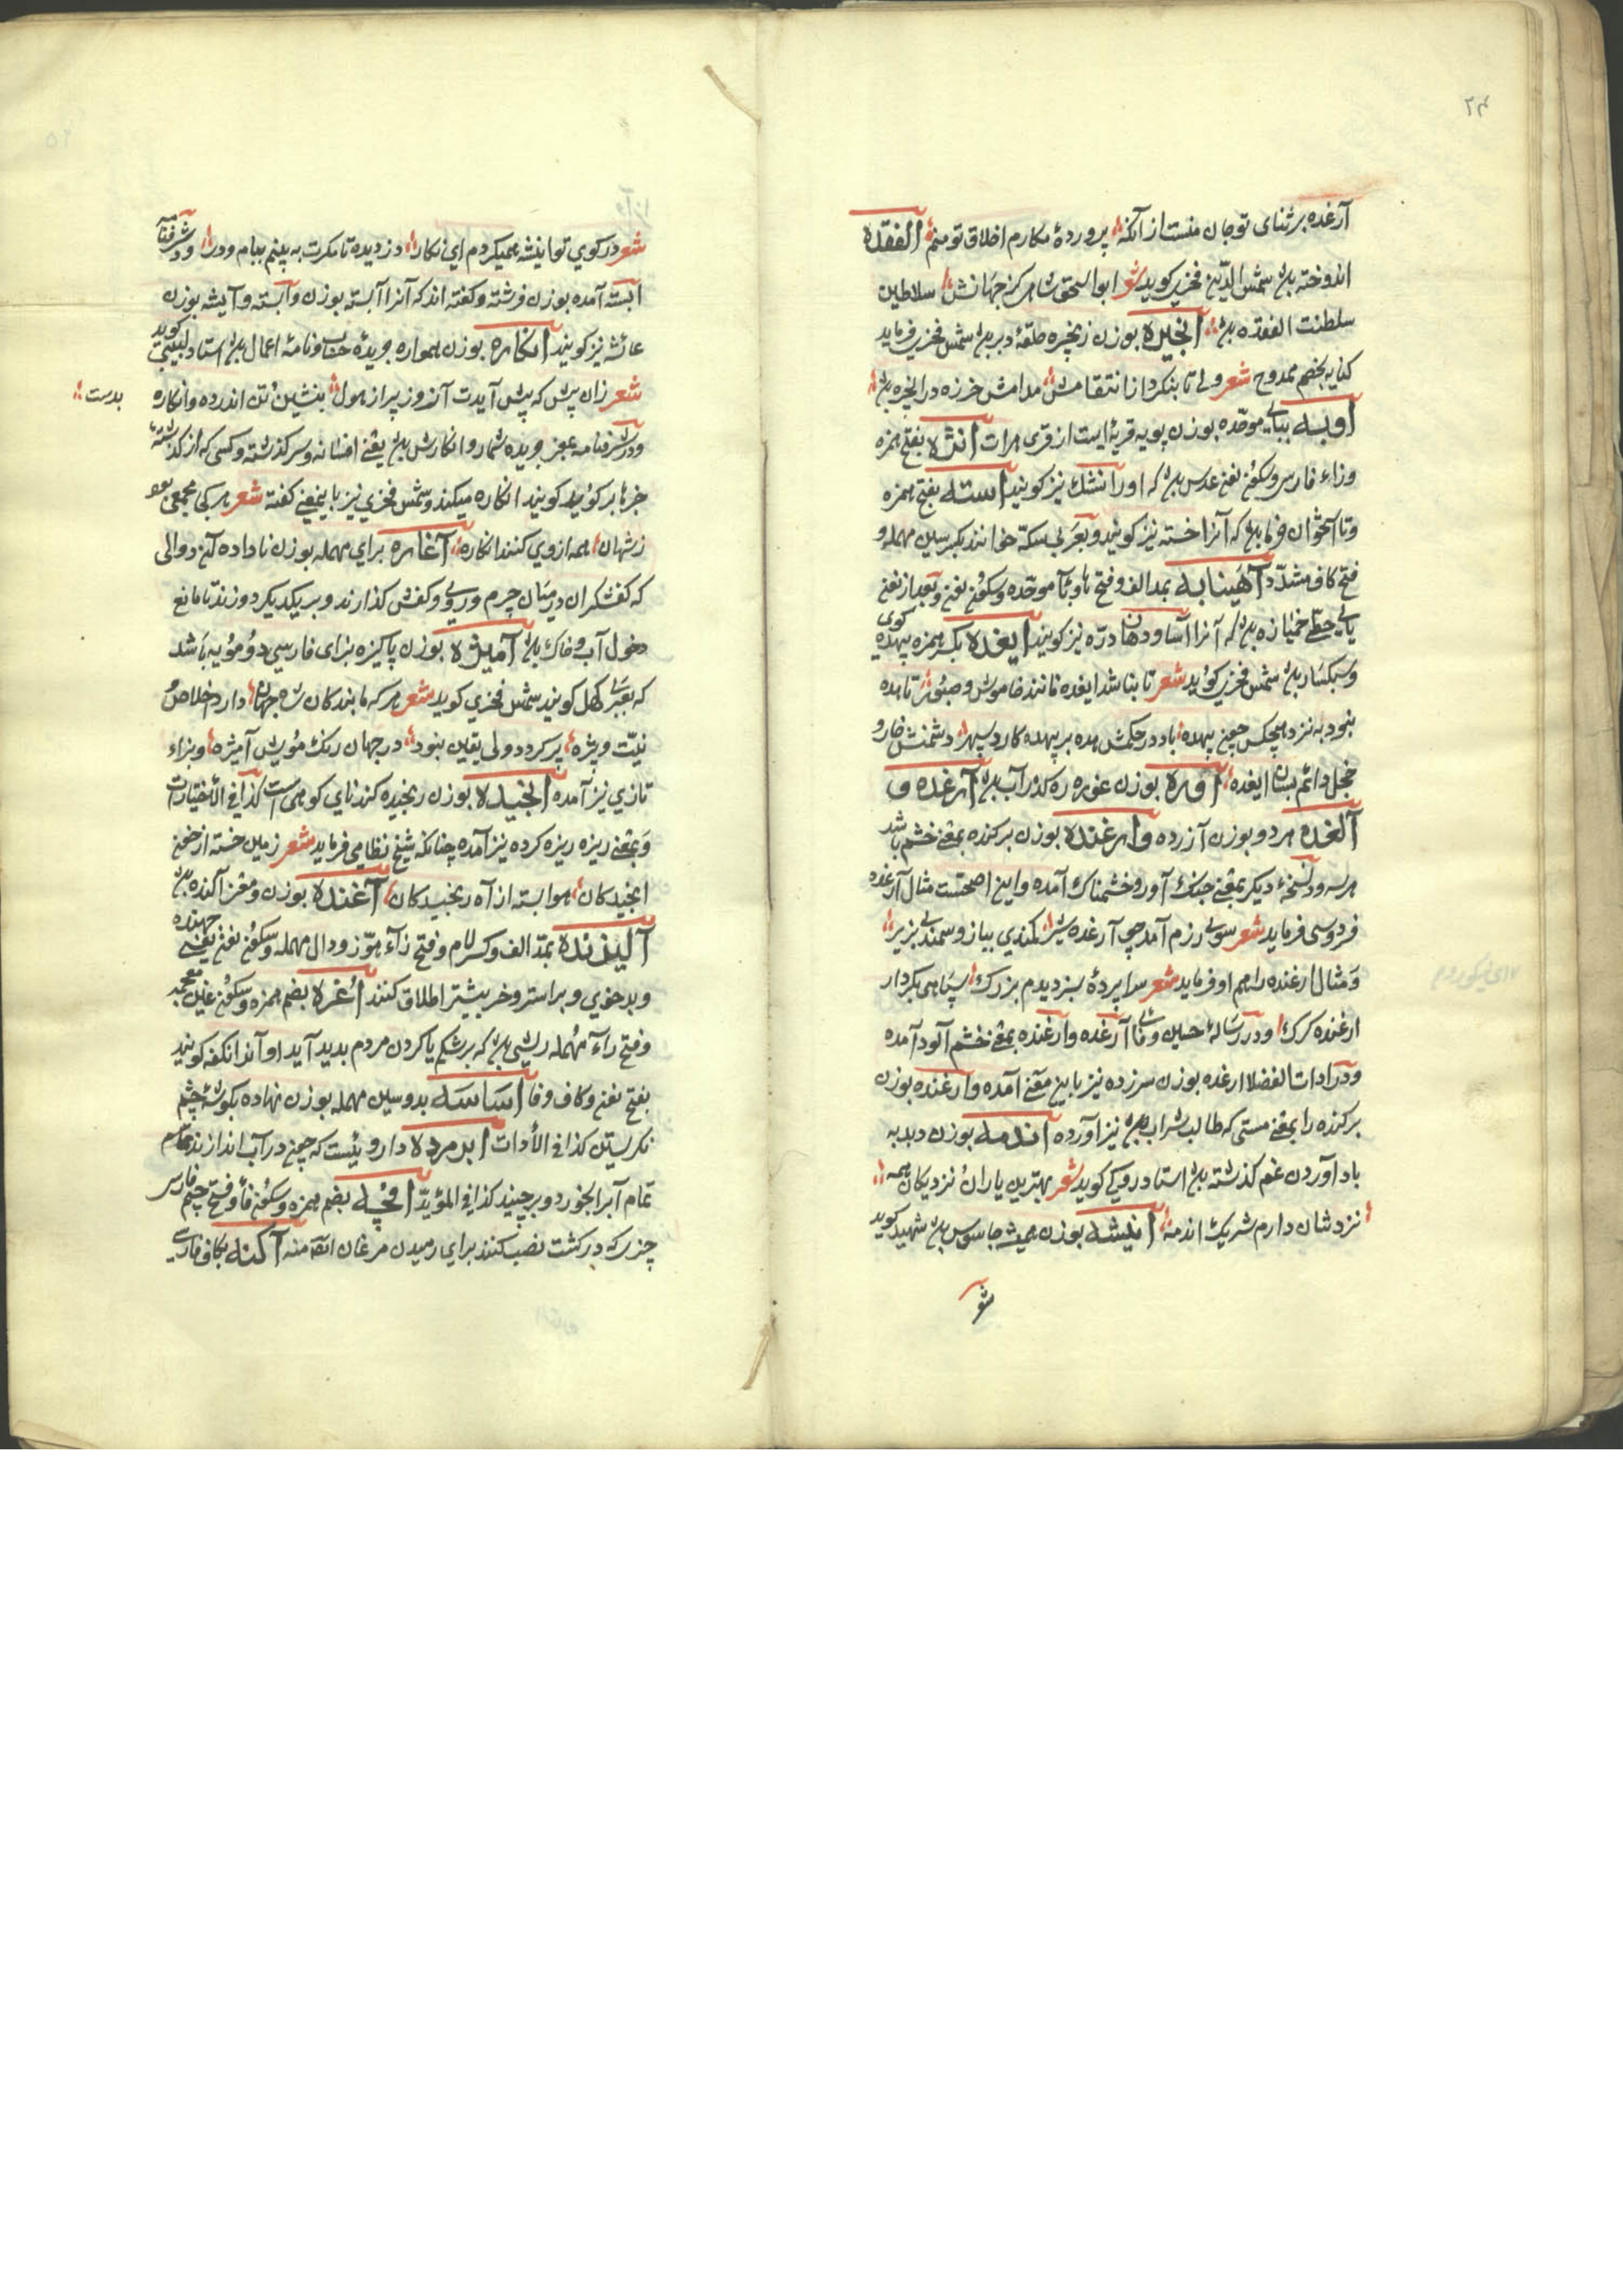 ۲۴
آرغده بر ثنای تو جان منست از آنکه پرورده مکارم اخلاق تو منم الفقده
اندوخته باشد شمس الدین فخری کوید شعر ابو اسحق شاهی کز جهانش سلاطین
سلطنت الفقده باشد انجیره بوزن زنجیره حلقهٔ دبر باشد شمس فخری فرماید
کنایه بخصم ممدوح شعر ولی تا بنکرد از انتقامش مدامش خرزه در انجیره باشد
اوبه ببای موحّده بوزن پویه قریهٔ ایست از قری هرات انژه بفتح همزه
وزاء فارسی وسکون نون عدس باشد که اورا نشک نیز کویند استه بفتح همزه
وتا استخوان خرما باشد که آنرا خسته نیز کویند وبعربی سکّه خوانند بکسر سین مهمله و
فتح کاف مشدّد آهینابه بمد الف وفتح ها وبا موحّده وسکون نون وبعد از نون
یای حطی خمیازه باشد که آنرا آسا ودهان درّه نیز کویند ایغده بکسر همزه بیهده کوی
وسبکسار باشد شمس فخری کوید شعر تا بنا شد ایغده مانند خاموش وصبور تا هده
بنود به نزد هیچکس چون بیهده باد در حکمش هده بر بیهده کار سپهر دشمنش خار و
خجل دائم بسان ایغده اوره بوزن غوره ره کذر آب باشد آرغده و
آلغده هر دو بوزن آزرده وارغنده بوزن برکنده بمعنی خشم باشد
هر سه ودر نسخهٔ دیکر بمعنی جنک آور وخشمناک آمده واین اصحتست مثال آرغده
فردوسی فرماید شعر سوی رزم آمد چو آرغده شیر کمندی ببازو سمندی بزیر
ومثال ارغنده را هم او فرماید شعر سرا پردهٔ سبز دیدم بزرک سپاهی بکردار
ارغنده کرک ودر رسالهٔ حسین وفا آرغده وارغنده بمعنی خشم آلود آمده
ودر ادات الفضلا ارغده بوزن سرزده نیز باین معنی آمده وارغنده بوزن
برکنده را بمعنی مستی که طالب شراب باشد نیز آورده اندمه بوزن دبدبه
یاد آوردن غم کذشته باشد استاد رودکی کوید شعر بهترین یاران نزدیکان همه
نزدشان دارم شریک اندمه انیشه بوزن همیشه جاسوس باشد شهید کوید
شعر
شعر در کوی تو انیشه همیکردم ای نکار دزدیده تا مکرت به بینم ببام ودر ودر شرفنامه
ابسته آمده بوزن فرشته وکفته اند که آنرا آبسته بوزن وآبسته وآیشه بوزن
عائشه نیز کویند انکاره بوزن همواره جریدهٔ حساب ونامهٔ اعمال باشد استاد لبیبی کوید
شعر زان پیش که پیش آیدت آنروز پر از هول بنشین وتن اندر ده وانکاره بدست
ودر شرفنامه بمعنی جریده شمار وانکارش باشد یعنی افسانه وسرکذشته وکسی که از کذشته
خبرها بر کوید کویند انکاره میکند وشمس فخری نیز باینمعنی کفته شعر هر کجا مجمعی بود
ز شهان همه از وی کنند انکاره آغاره برای مهمله بوزن ناداده کنج دوالی
که کفشکران در میان چرم وروی وکفش کذارند وبر یکدیکر دوزند تا مانع
دخول آب وخاک باشد آمیژه بوزن پاکیزه بزای فارسی دو مویه باشد
که بعربی کهل کویند شمس فخری کوید شعر هر که با بندکان شاه جهان دارد اخلاص و
نیت ویژه پر کردد ولی یقین بنود در جهان رنک مویش آمیژه وبزاء
تازی نیز آمده انجیده بوزن رنجیده کندنای کوهی است کذا فی الأختیارات
وبمعنی ریزه ریزه کرده نیز آمده چنانکه شیخ نظامی فرماید شعر زمین خسته از خون
انجیدکان هوا بسته از آه رنجیدکان آغنده بوزن ومعنی آکنده باشد
آلیزنده بمدّ الف وکسر لام وفتح زاء هوّز ودال مهمله وسکون نون یعنی جهنده
وبدخوی وبر استر وخر بیشتر اطلاق کنند اُغره بضم همزه وسکون غین معجمه
وفتح راء مهمله ریشی باشد که بر شکم یا کردن مردم بدید آید او آنرا نکفه کویند
بفتح نون وکاف وفا اساسه بدو سین مهمله بوزن نهاده بکوشهٔ چشم
نکریستن کذا فی الأدات ابل مرده داروئیست که چون در آب اندازند
تمام آبرا بخورد وبر چیند کذا فی المؤید افچه بضم همزه وسکون فا وفتح چیم فارسی
چیزی که در کشت نصب کنند برای رمیدن مرغان آکنه بکاف فارسی